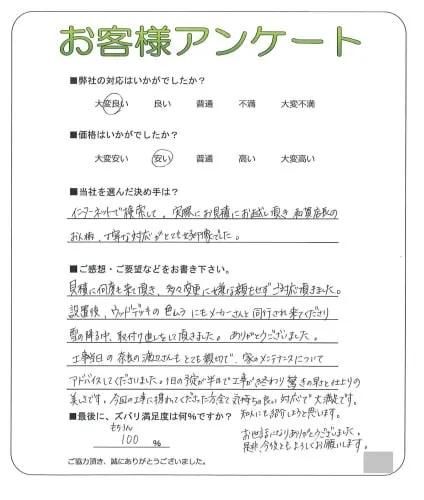 お客様アンケート
■弊社の対応はいかがでしたか？
大変良い 良い 普通 不満 大変不満
■価格はいかがでしたか？
大変安い 安い 普通 高い 大変高い
■当社を選んだ決め手は？
インターネットで検索して、実際にお見積にお越し頂き 店長の
お人柄、丁寧な対応がとても好印象でした。
■ご感想・ご要望などをお書き下さい。
見積に何度も来て頂き、多々変更に嫌な顔もせず ご対応頂きました。
設置後、ウッドデッキの色ムラにもメーカーさんと同行され来てくださり
雪の降る中、取付け直しをして頂きました。ありがとうございました。
工事当日の 渡辺さんもとても親切で、家のメンテナンスについて
アドバイスしてくださいました。1日の予定が半日で工事が終わり 驚きの早さと仕上りの
美しさです。今回の工事に携わってくださった方全て気持ちの良い対応で大満足です。
■最後に、ズバリ満足度は何%ですか？
知人にも紹介しようと思います。
もちろん
100 %
お世話になりありがとうございました。
是非、今後ともよろしくお願いします。
ご協力頂き、誠にありがとうございました。